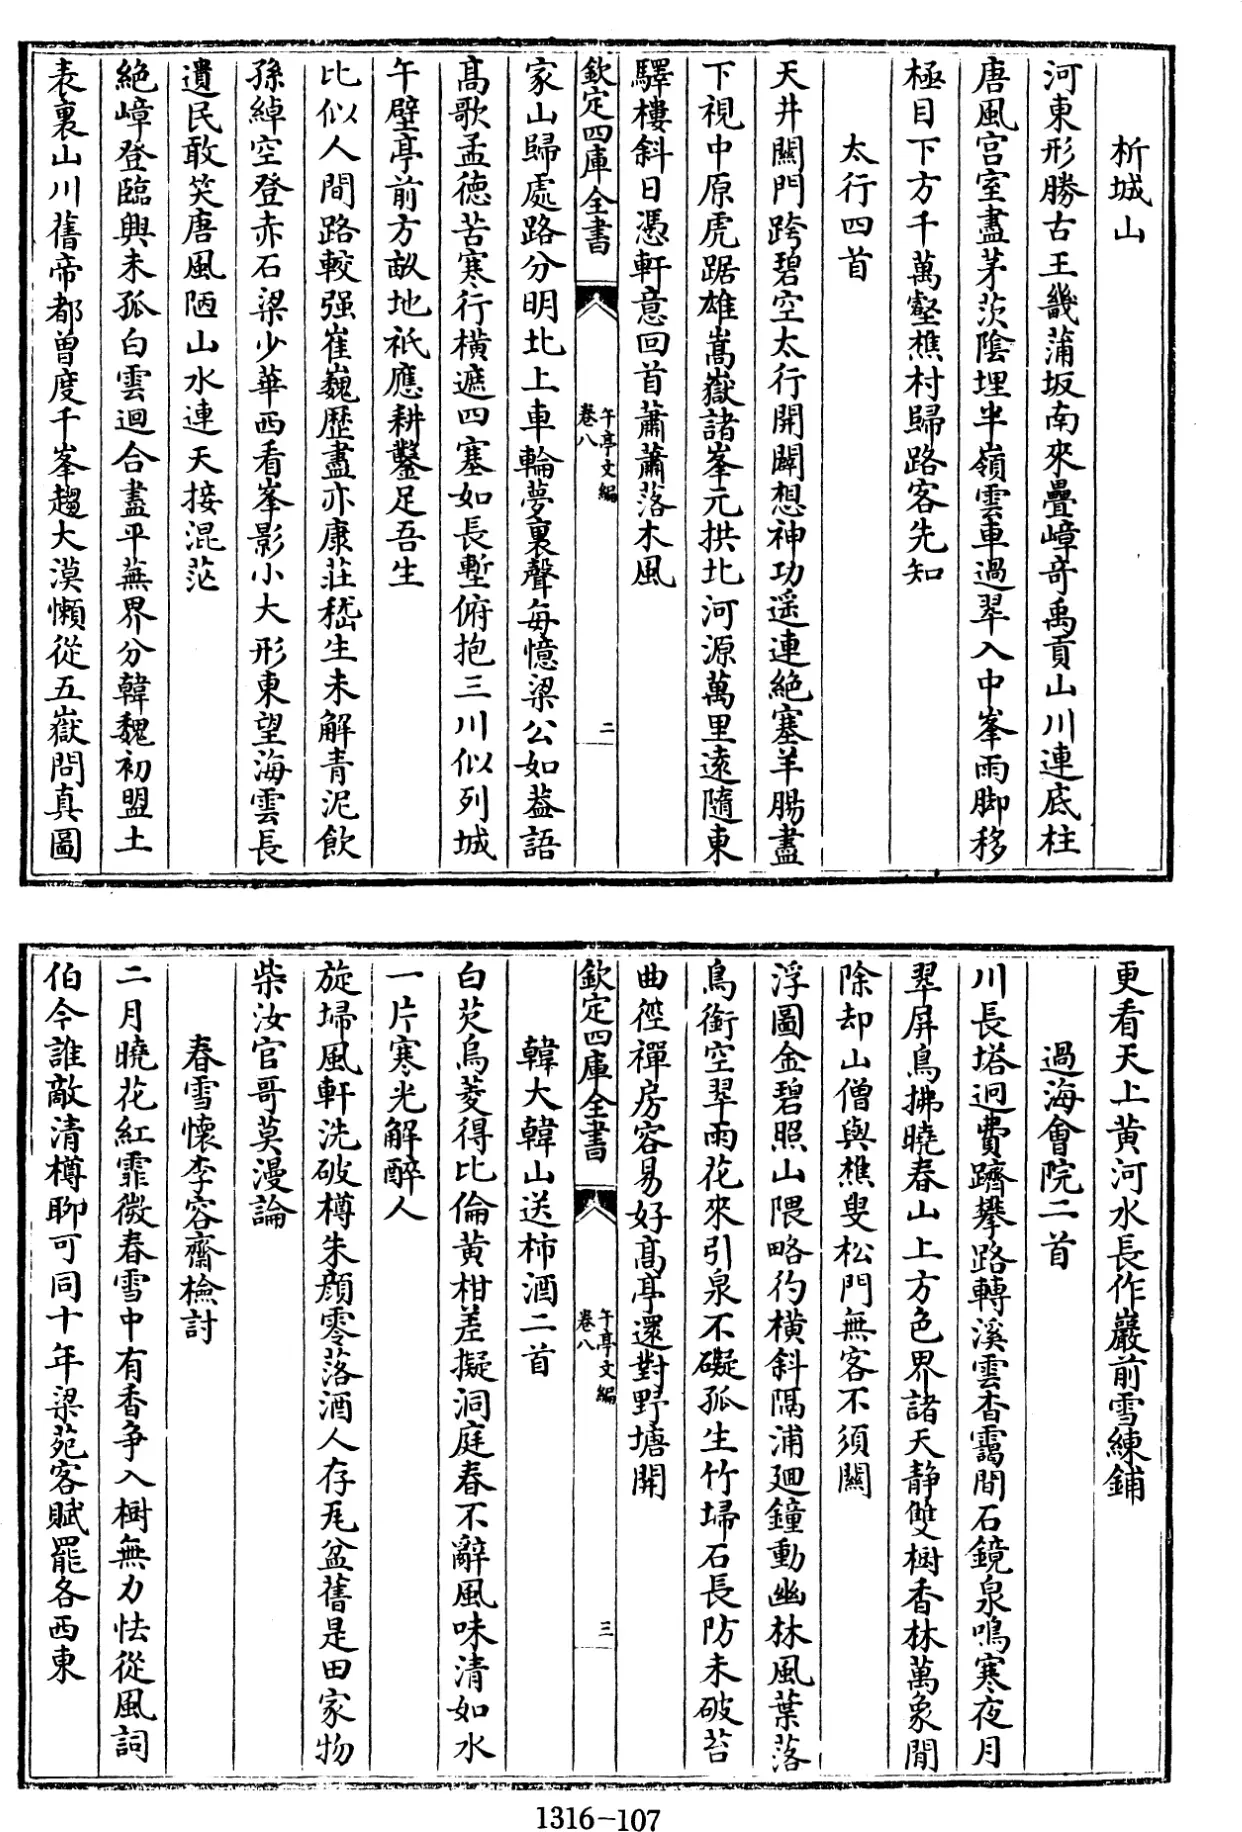 析城山
河東形勝古王畿蒲坂南來疊嶂奇禹貢山川連底柱
唐風宫室盡茅茨陰埋半嶺雲車過翠入中峯雨脚移
極目下方千萬壑樵村歸路客先知
太行四首
天井關門跨碧空太行開闢想神功遥連絶塞羊腸盡
下視中原虎踞雄嵩嶽諸峯元拱北河源萬里遠隨東
驛樓斜日憑軒意回首蕭蕭落木風
欽定四庫全書
午亭文編
卷八
二
家山歸處路分明北上車輪夢裏聲每憶梁公如葢語
髙歌孟德苦寒行横遮四塞如長塹俯抱三川似列城
午壁亭前方畝地祇應耕鑿足吾生
比似人間路較强崔巍歴盡亦康莊嵇生未解青泥飲
孫綽空登赤石梁少華西看峯影小大形東望海雲長
遺民敢笑唐風陋山水連天接混茫
絶嶂登臨興未孤白雲迴合盡平蕪界分韓魏初盟土
表裏山川舊帝都曽度千峯趨大漠懶從五嶽問真圖
更看天上黄河水長作巖前雪練鋪
過海會院二首
川長塔迥費躋攀路轉溪雲杳靄間石鏡泉鳴寒夜月
翠屏鳥拂曉春山上方色界諸天静雙樹香林萬象閒
除却山僧與樵叟松門無客不須關
浮圖金碧照山隈略彴横斜隔浦廻鐘動幽林風葉落
鳥銜空翠雨花來引泉不礙孤生竹埽石長防未破苔
曲徑禪房容易好髙亭還對野塘開
欽定四庫全書
午亭文編
卷八
三
韓大韓山送柿酒二首
白芡烏菱得比倫黄柑差擬洞庭春不辭風味清如水
一片寒光解醉人
旋埽風軒洗破樽朱顔零落酒人存瓦盆舊是田家物
柴汝官哥莫漫論
春雪懷李容齋檢討
二月曉花紅霏微春雪中有香争入樹無力怯從風詞
伯今誰敵清樽聊可同十年梁苑客賦罷各西東
1316-107